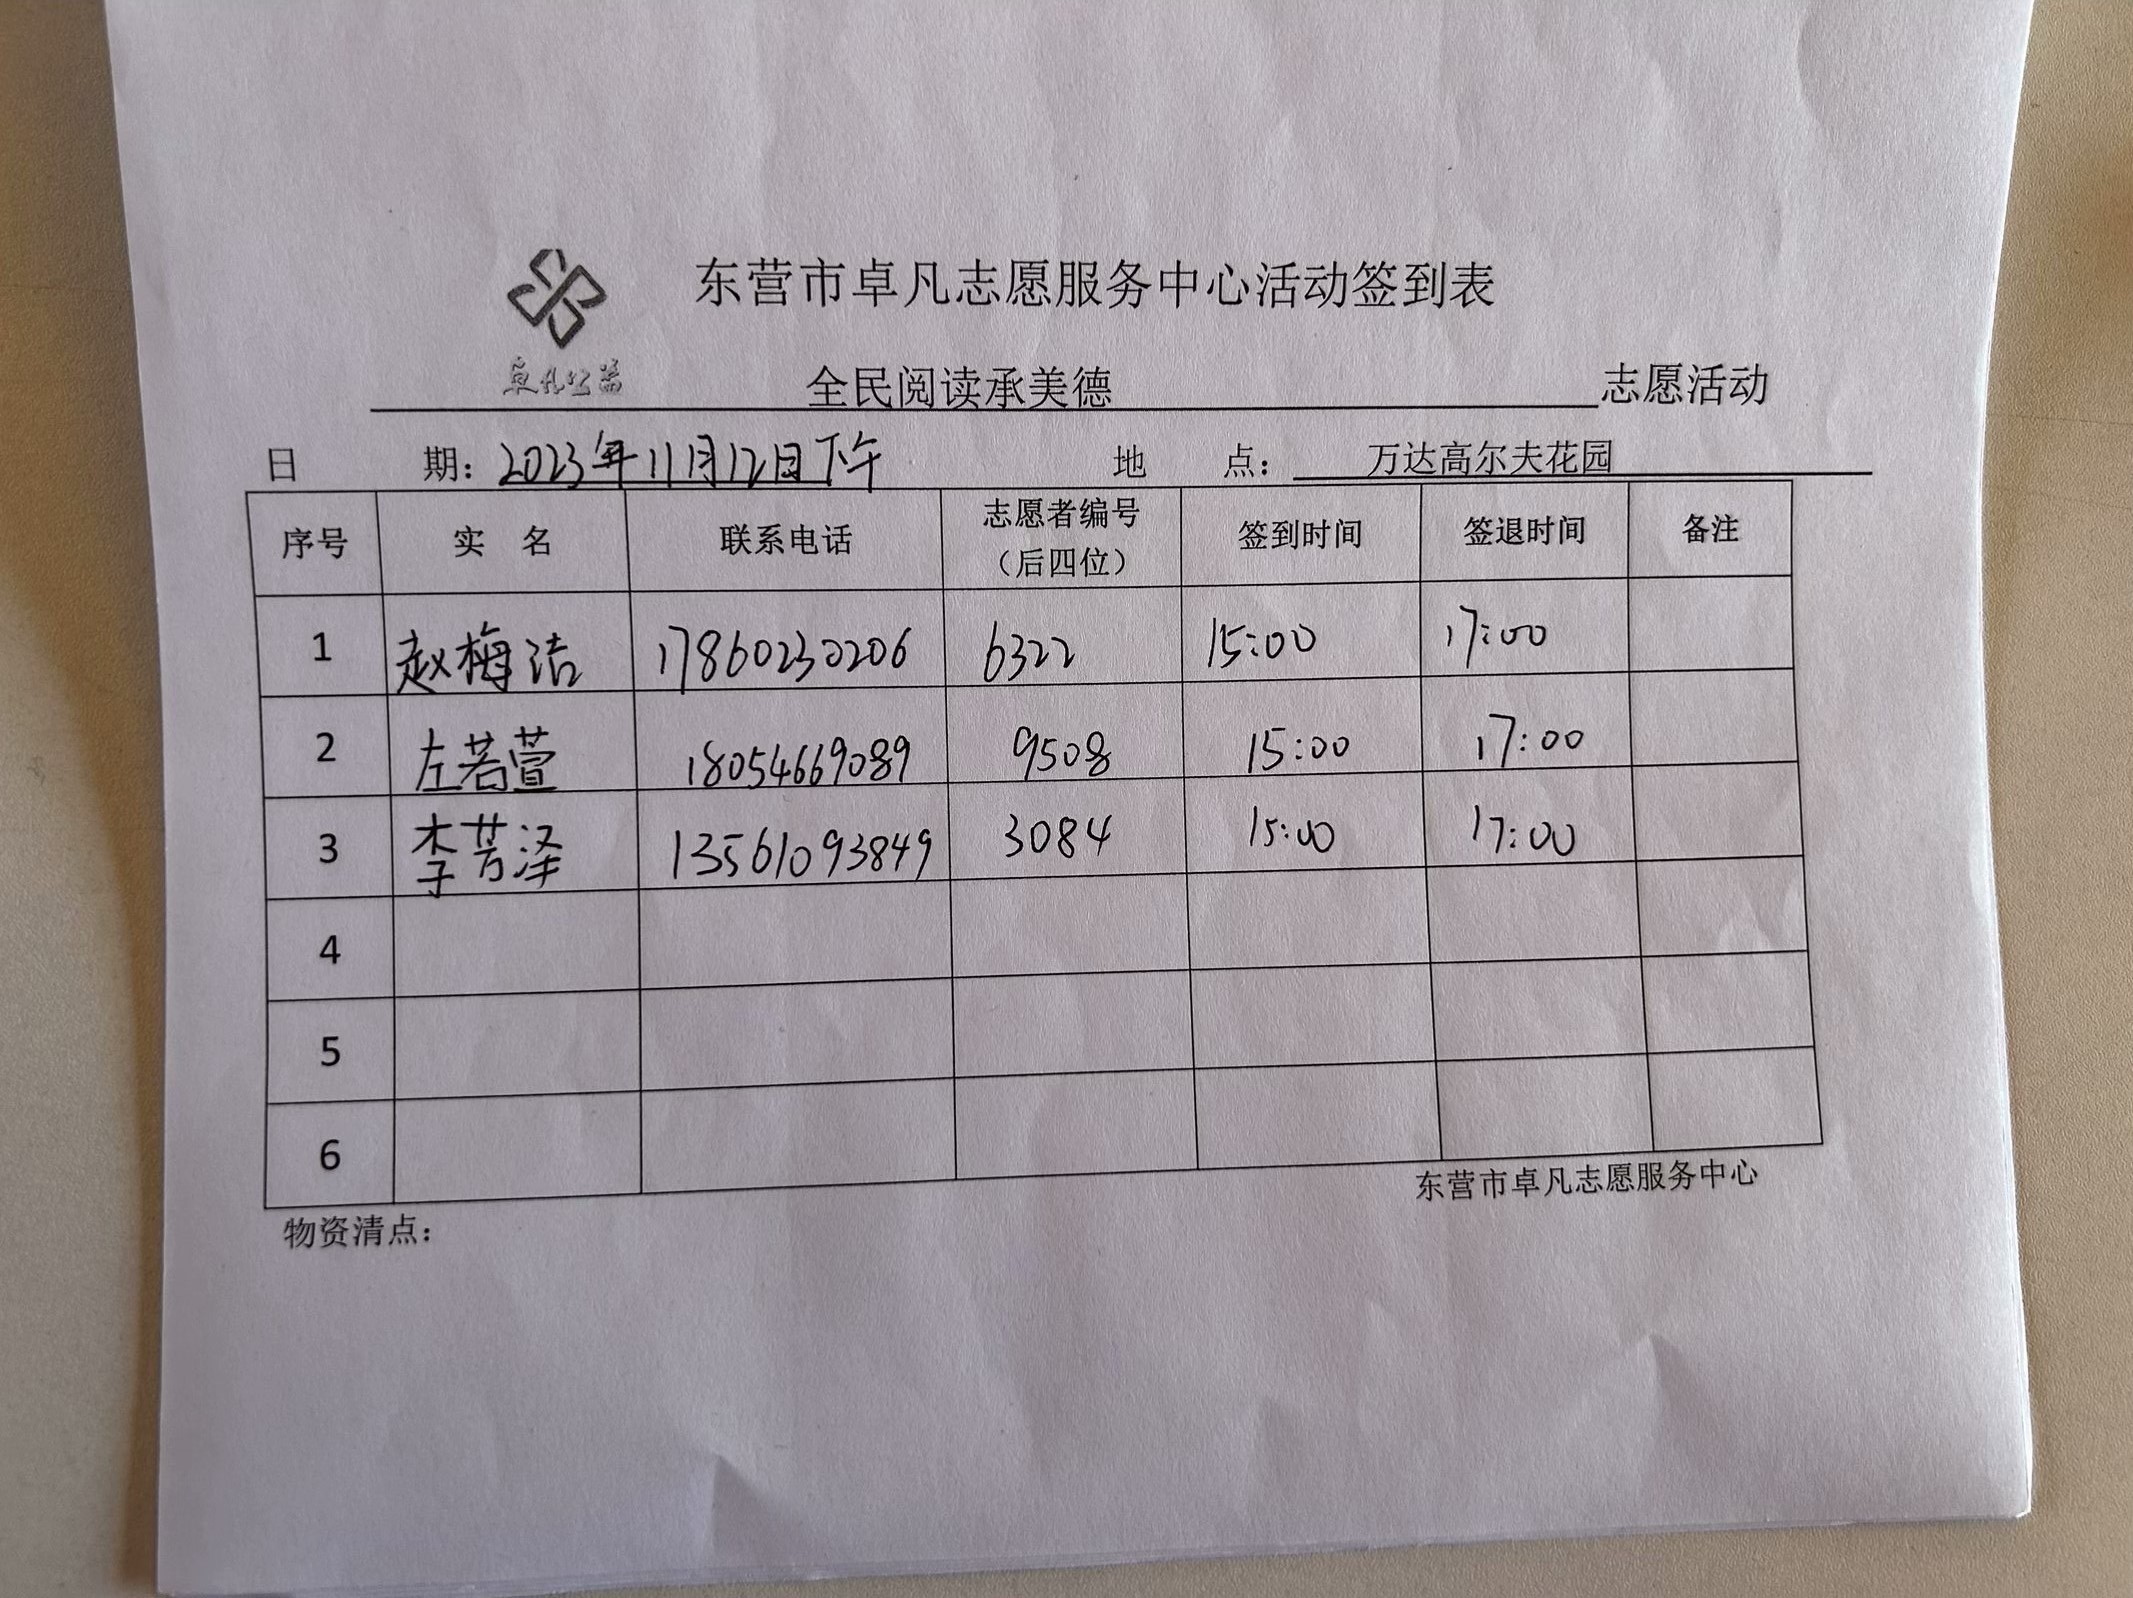 东营市卓凡志愿服务中心活动签到表
卓凡公益
全民阅读承美德 志愿活动
日 期：2023年11月12日下午 地 点：万达高尔夫花园
序号 实 名 联系电话 志愿者编号（后四位） 签到时间 签退时间 备注
1 赵梅洁 17860230206 6322 15:00 17:00
2 左若萱 18054669089 9508 15:00 17:00
3 李芳泽 13561093849 3084 15:00 17:00
4
5
6
东营市卓凡志愿服务中心
物资清点：